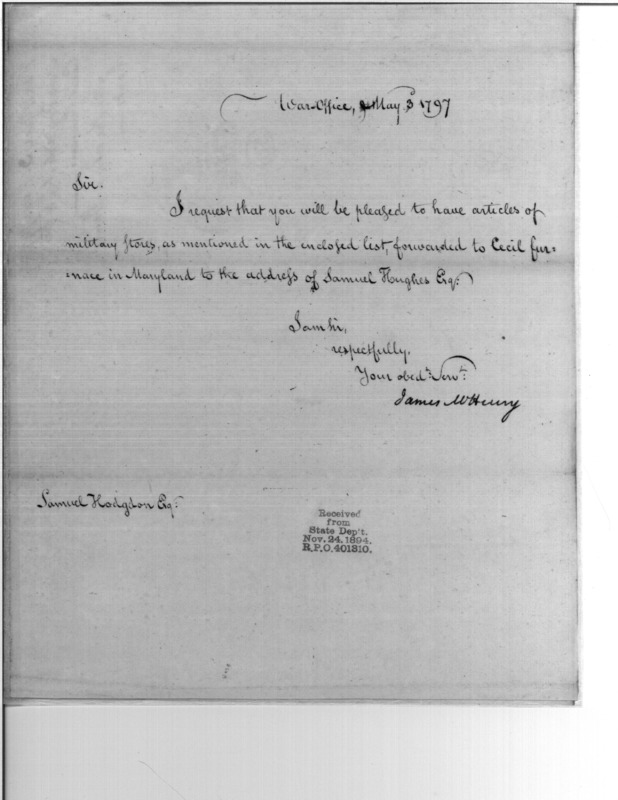 War-Office, May 3 1797
Sir.
I request that you will be pleased to have articles of
military stores, as mentioned in the enclosed list, forwarded to Cecil fur=
=nace in Maryland to the address of Samuel Hughes Esqr.
I am sir,
respectfully.
Your obedt. Servt.
James McHenry
Samuel Hodgdon Esqr.
Received
from
State Dep't.
Nov. 24. 1894.
R.P.O. 401310.